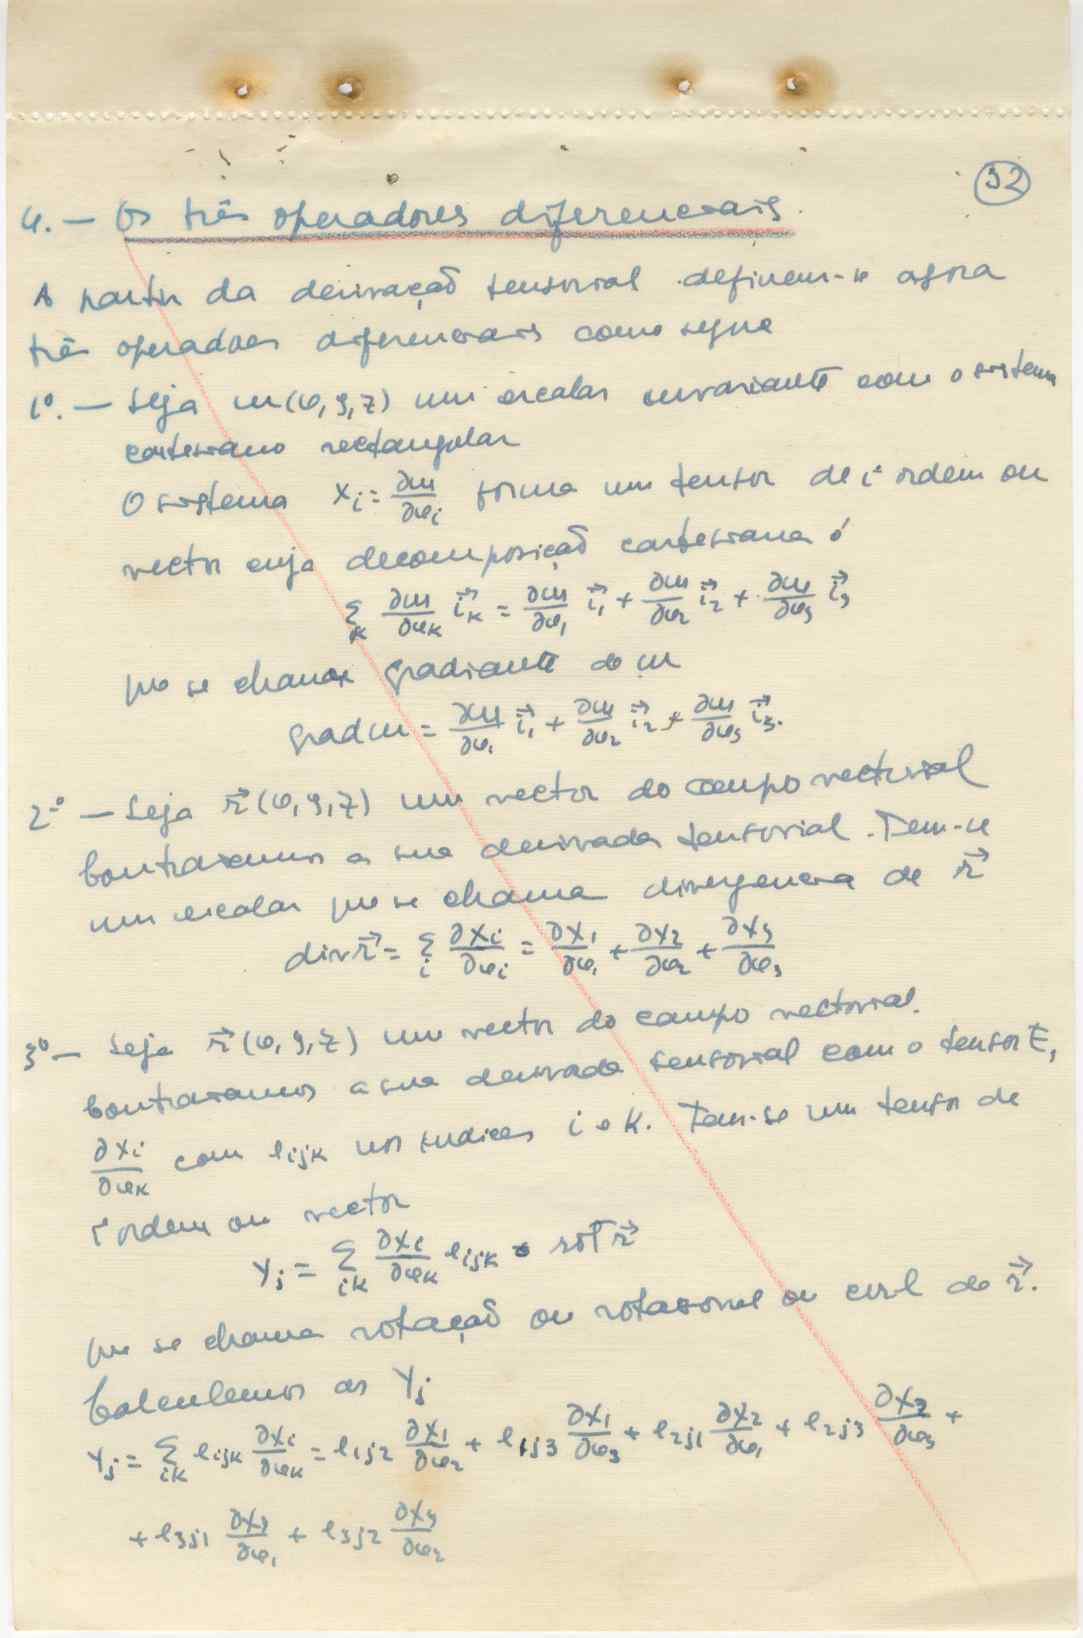 32
4. — Os três operadores diferenciais.
A partir da derivação tensorial definem-se agora
três operadores diferenciais como segue
1º. — Seja m(φ,ρ,z) um escalar invariante com o sistema
cartesiano rectangular
O sistema Xi = ∂m/∂φi forma um tensor de 1ª ordem ou
vector cuja decomposição cartesiana é
∑k ∂m/∂φk i⃗k = ∂m/∂φ1 i⃗1 + ∂m/∂φ2 i⃗2 + ∂m/∂φ3 i⃗3
que se chama gradiante de m
grad m = ∂m/∂φ1 i⃗1 + ∂m/∂φ2 i⃗2 + ∂m/∂φ3 i⃗3.
2º — Seja r⃗(φ,ρ,z) um vector do campo vectorial
Contraiamos a sua derivada tensorial. Tem-se
um escalar que se chama divergencia de r⃗
div r⃗ = ∑i ∂Xi/∂φi = ∂X1/∂φ1 + ∂X2/∂φ2 + ∂X3/∂φ3
3º — Seja r⃗(φ,ρ,z) um vector do campo vectorial.
Contraiamos a sua derivada tensorial com o tensor E,
∂Xi/∂φk com eijk nos indices i e k. Tem-se um tensor de
1ª ordem ou vector
Yj = ∑ik ∂Xi/∂φk eijk = rot r⃗
que se chama rotação ou rotacional ou curl de r⃗.
Calculemos os Yj
Yj = ∑ik eijk ∂Xi/∂φk = e1j2 ∂X1/∂φ2 + e1j3 ∂X1/∂φ3 + e2j1 ∂X2/∂φ1 + e2j3 ∂X2/∂φ3 +
+ e3j1 ∂X3/∂φ1 + e3j2 ∂X3/∂φ2